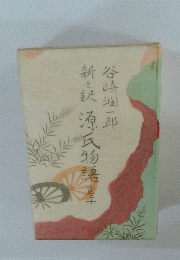 谷崎潤一郎
新々訳 源氏物語